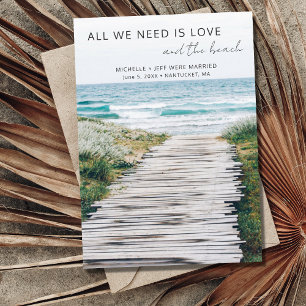 ALL WE NEED IS LOVE
and the beach
MICHELLE + JEFF WERE MARRIED
June 5, 20XX • NANTUCKET, MA